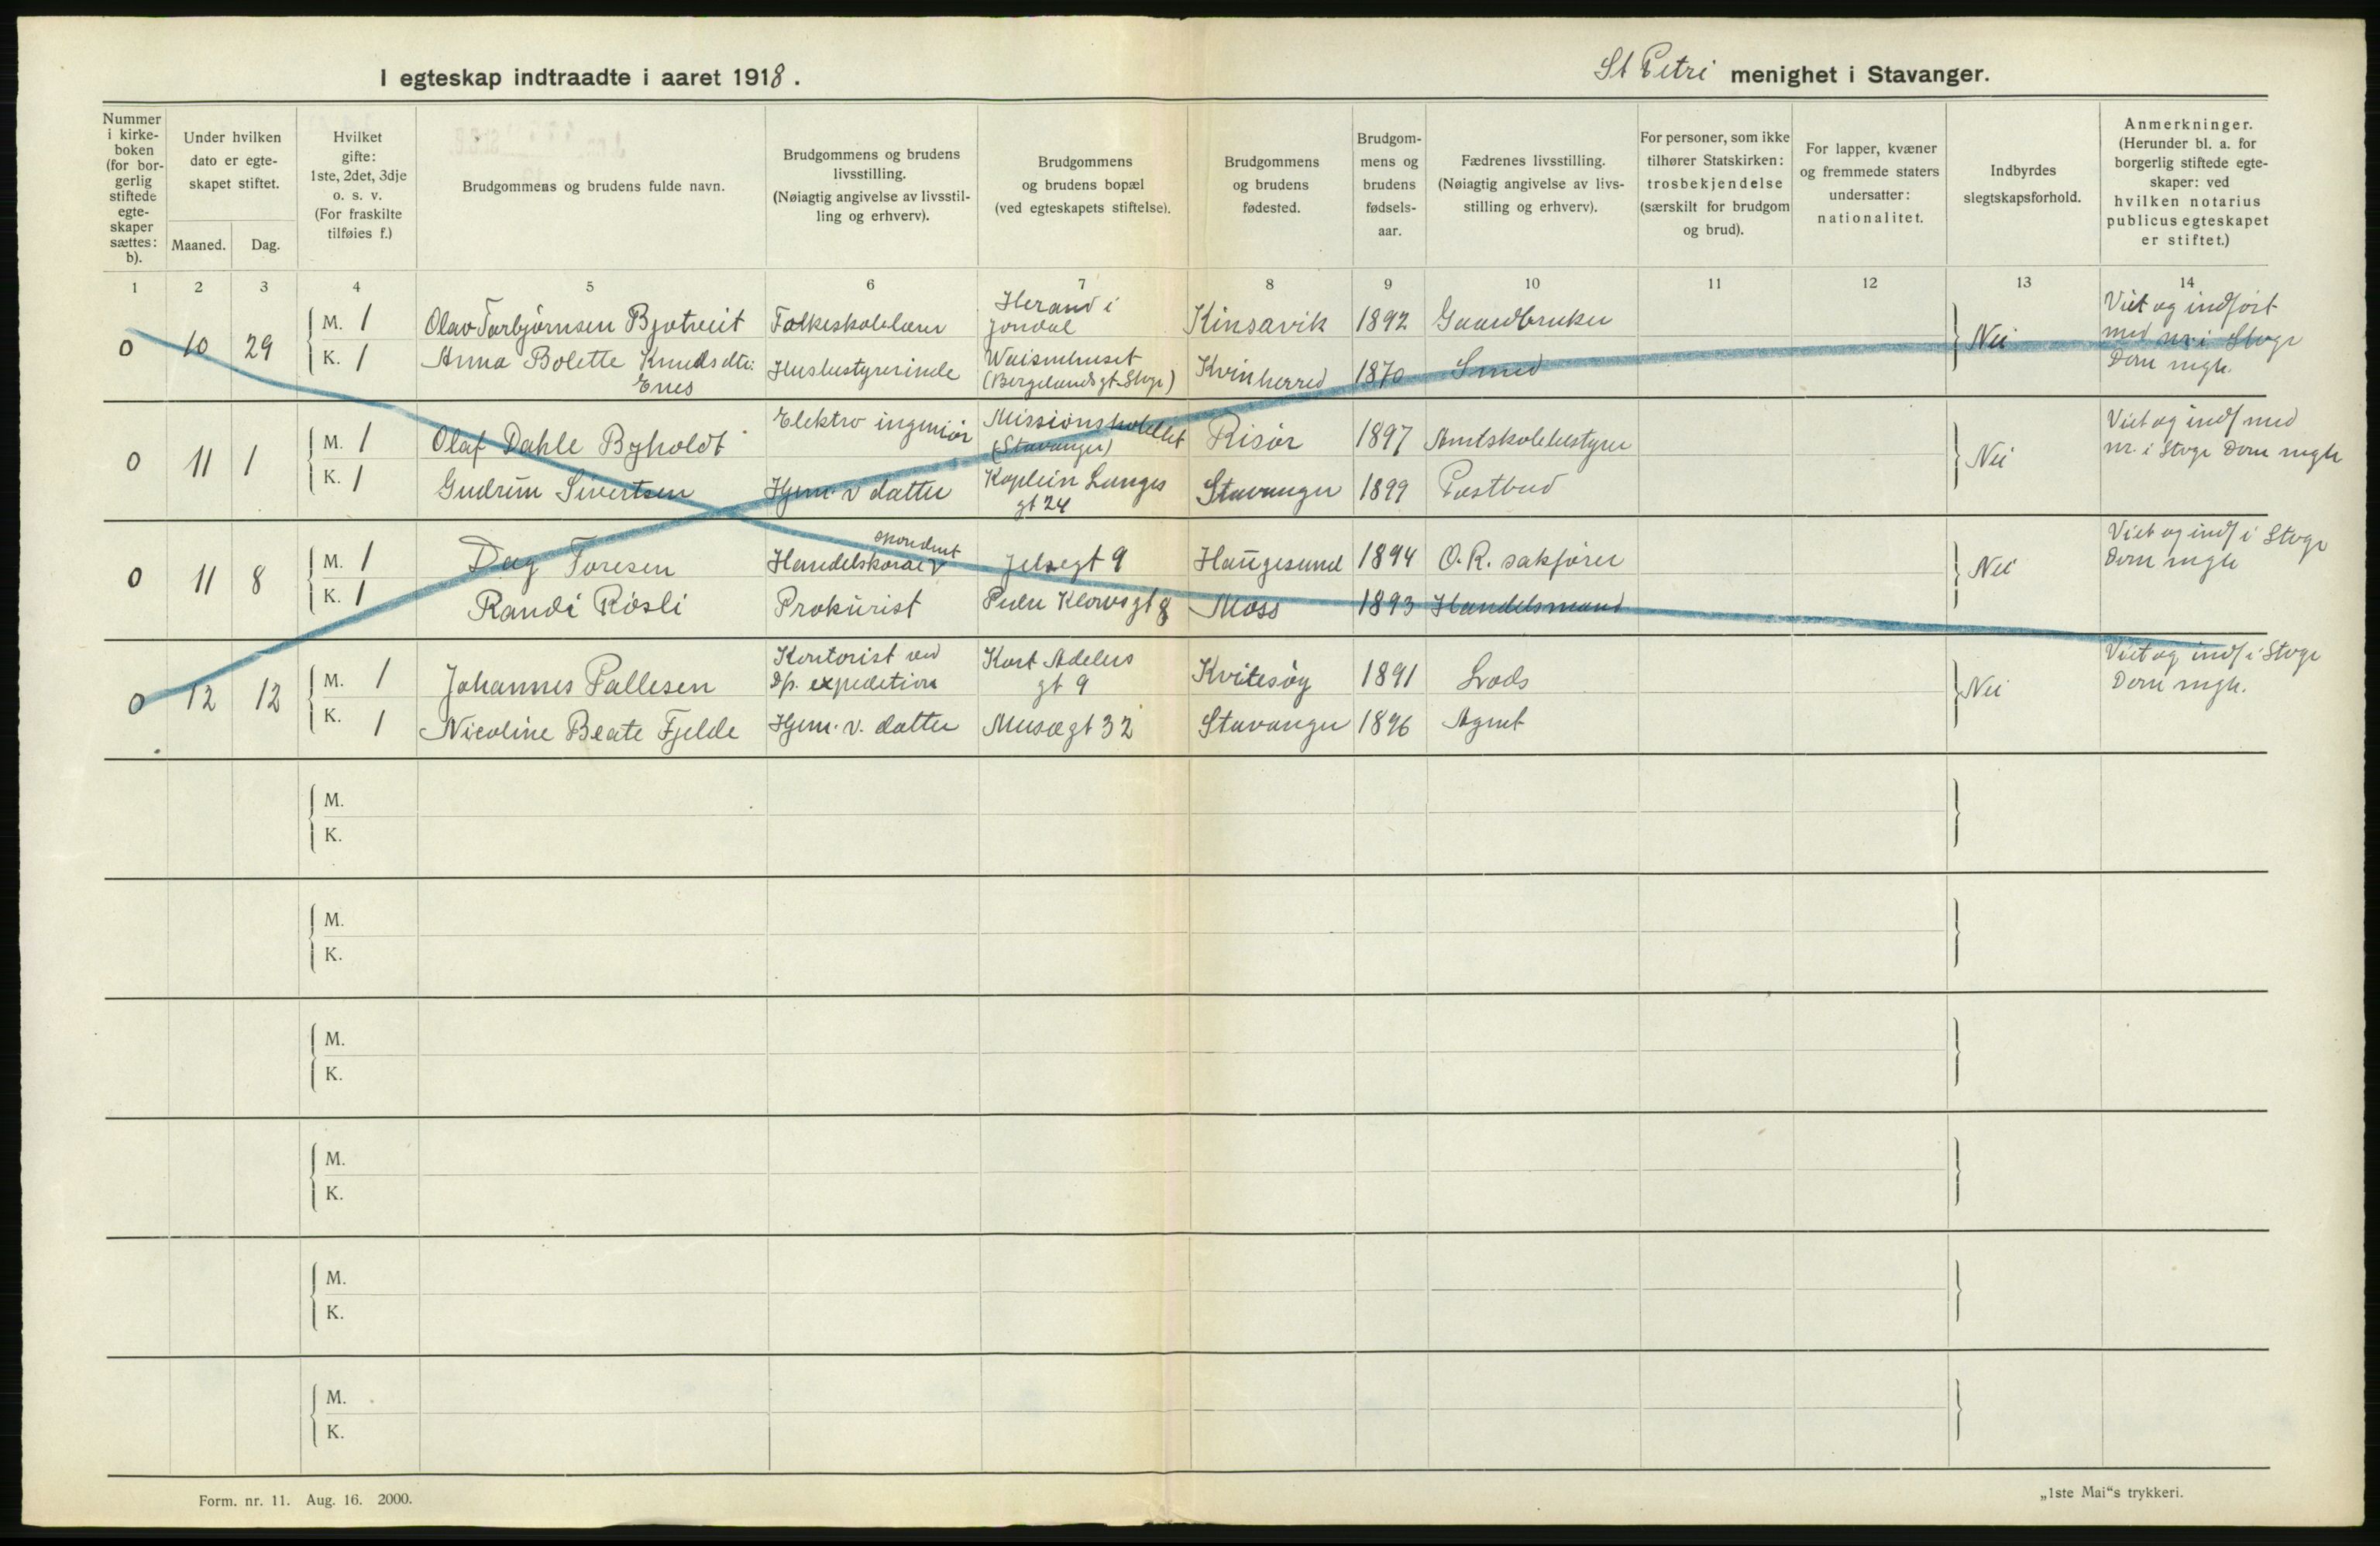 I egteskap indtraadte i aaret 1918.
St Petri menighet i Stavanger.
Nummer i kirke-boken (for bor-gerlig stiftede egte-skaper sættes: b).
Under hvilken dato er egte-skapet stiftet.
Maaned.
Dag.
Hvilket gifte: 1ste, 2det, 3dje o. s. v. (For fraskilte tilføies f.)
Brudgommens og brudens fulde navn.
Brudgommens og brudens livsstilling. (Nøiagtig angivelse av livsstil-ling og erhverv).
Brudgommens og brudens bopæl (ved egteskapets stiftelse).
Brudgommens og brudens fødested.
Brudgom-mens og brudens fødsels-aar.
Fædrenes livsstilling. (Nøiagtig angivelse av livs-stilling og erhverv).
For personer, som ikke tilhører Statskirken: trosbekjendelse (særskilt for brudgom og brud).
For lapper, kvæner og fremmede staters undersatter: nationalitet.
Indbyrdes slegtskapsforhold.
Anmerkninger. (Herunder bl. a. for borgerlig stiftede egte-skaper: ved hvilken notarius publicus egteskapet er stiftet.)
1 2 3 4 5 6 7 8 9 10 11 12 13 14
0 10 29
M. 1 Olav Torbjörnsen Bjotveit Folkeskolelærer Herand i Jondal Kinsavik 1892 Gaardbruker
K. 1 Anna Bolette Knudsdtr: Enes Husbestyrerinde Waisenhuset (Bergelandsgt. Stvgr) Kvinherred 1870 Smed
Nei
Viet og indført med nr. i Stvgr Dom mgh.
0 11 1
M. 1 Olaf Dahle Byholdt Elektro ingeniör Missionshotellet (Stavanger) Risör 1897 Amtskolebestyrer
K. 1 Gudrun Sivertsen Hjem. v datter Kaptein Langes gt 24 Stavanger 1899 Postbud
Nei
Viet og indf med nr. i Stvgr Dom mgh
0 11 8
M. 1 Dag Toresen Jelsegt 9 Haugesund 1894 O.R. sakförer
K. 1 Randi Rösli Prokurist Peder Klowsgt 8 Moss 1893 Handelsmand
Nei
Viet og indf i Stvgr Dom mgh
0 12 12
M. 1 Johannes Pallesen Kontorist ved dp. expedition Kort Adelers gt 9 Kvitesöy 1891 Lods
K. 1 Nicoline Beate Fjelde Hjem. v. datter Musægt 32 Stavanger 1896 Agent
Nei
Viet og indf i Stvgr Dom mgh.
M.
K.
M.
K.
M.
K.
M.
K.
M.
K.
M.
K.
Form. nr. 11. Aug. 16. 2000.
„1ste Mai“s trykkeri.